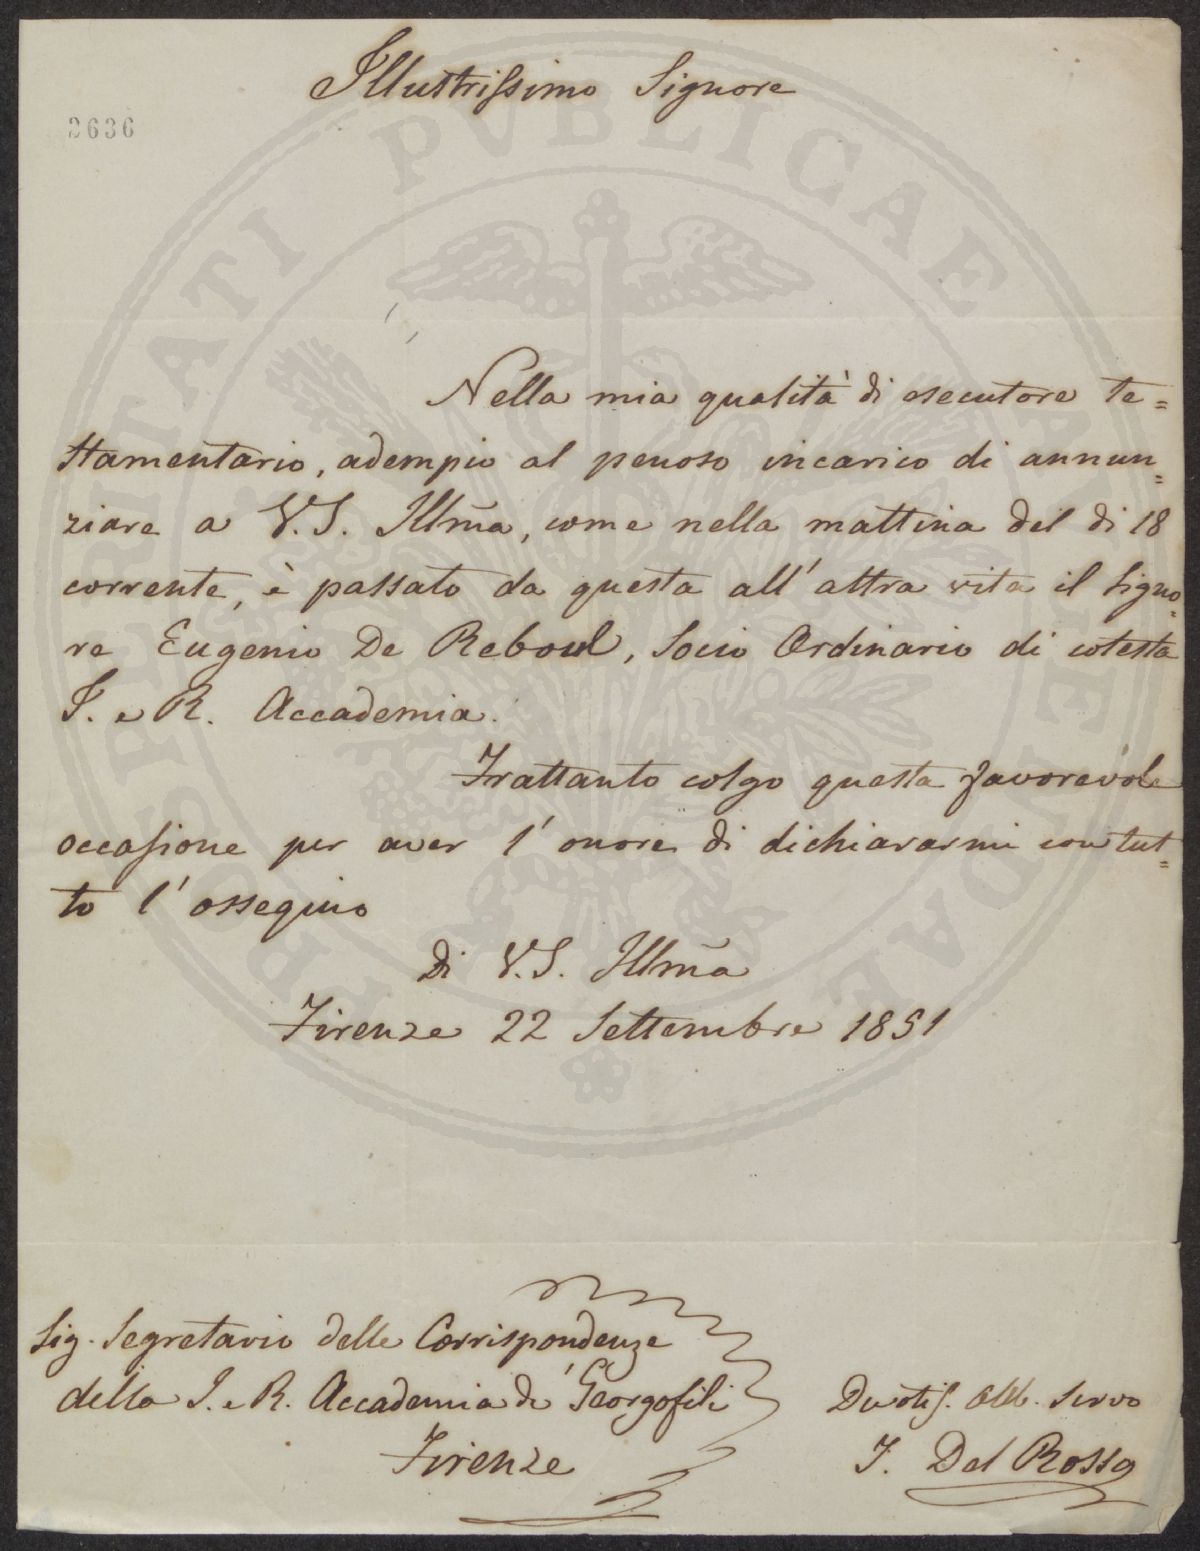 Illustrissimo Signore
2636
Nella mia qualità di esecutore te=
stamentario, adempio al penoso incarico di annun=
ziare a V.S. Illm̃a, come nella mattina del di 18
corrente, è passato da questa all'altra vita il Signo=
re Eugenio De Reboul, Socio Ordinario di cotesta
I. e R. Accademia.
Frattanto colgo questa favorevole
occasione per aver l'onore di dichiararmi con tut=
to l'ossequio
Di V.S. Illm̃a
Firenze 22 Settembre 1851
Sig. Segretario delle Corrispondenze
della I. e R. Accademia de' Georgofili
Firenze
Devotis. Obb. Servo
F. Del Rosso
PROSPERITATI PVBLICAE AVGENDAE